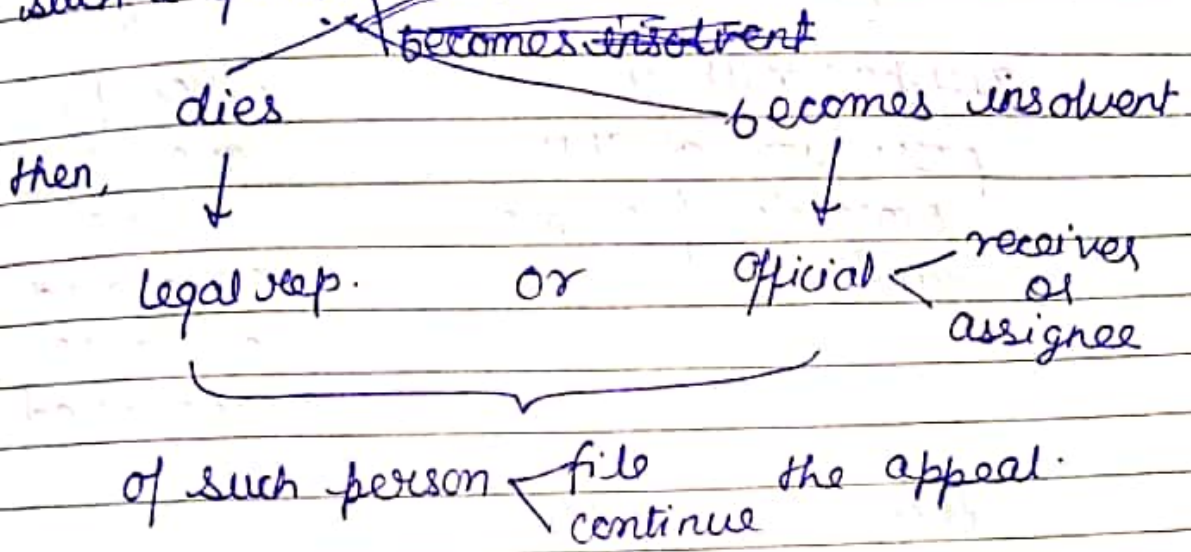 becomes insolvent
dies becomes insolvent
then,
legal rep. or official receiver
or
assignee
of such person file the appeal.
continue